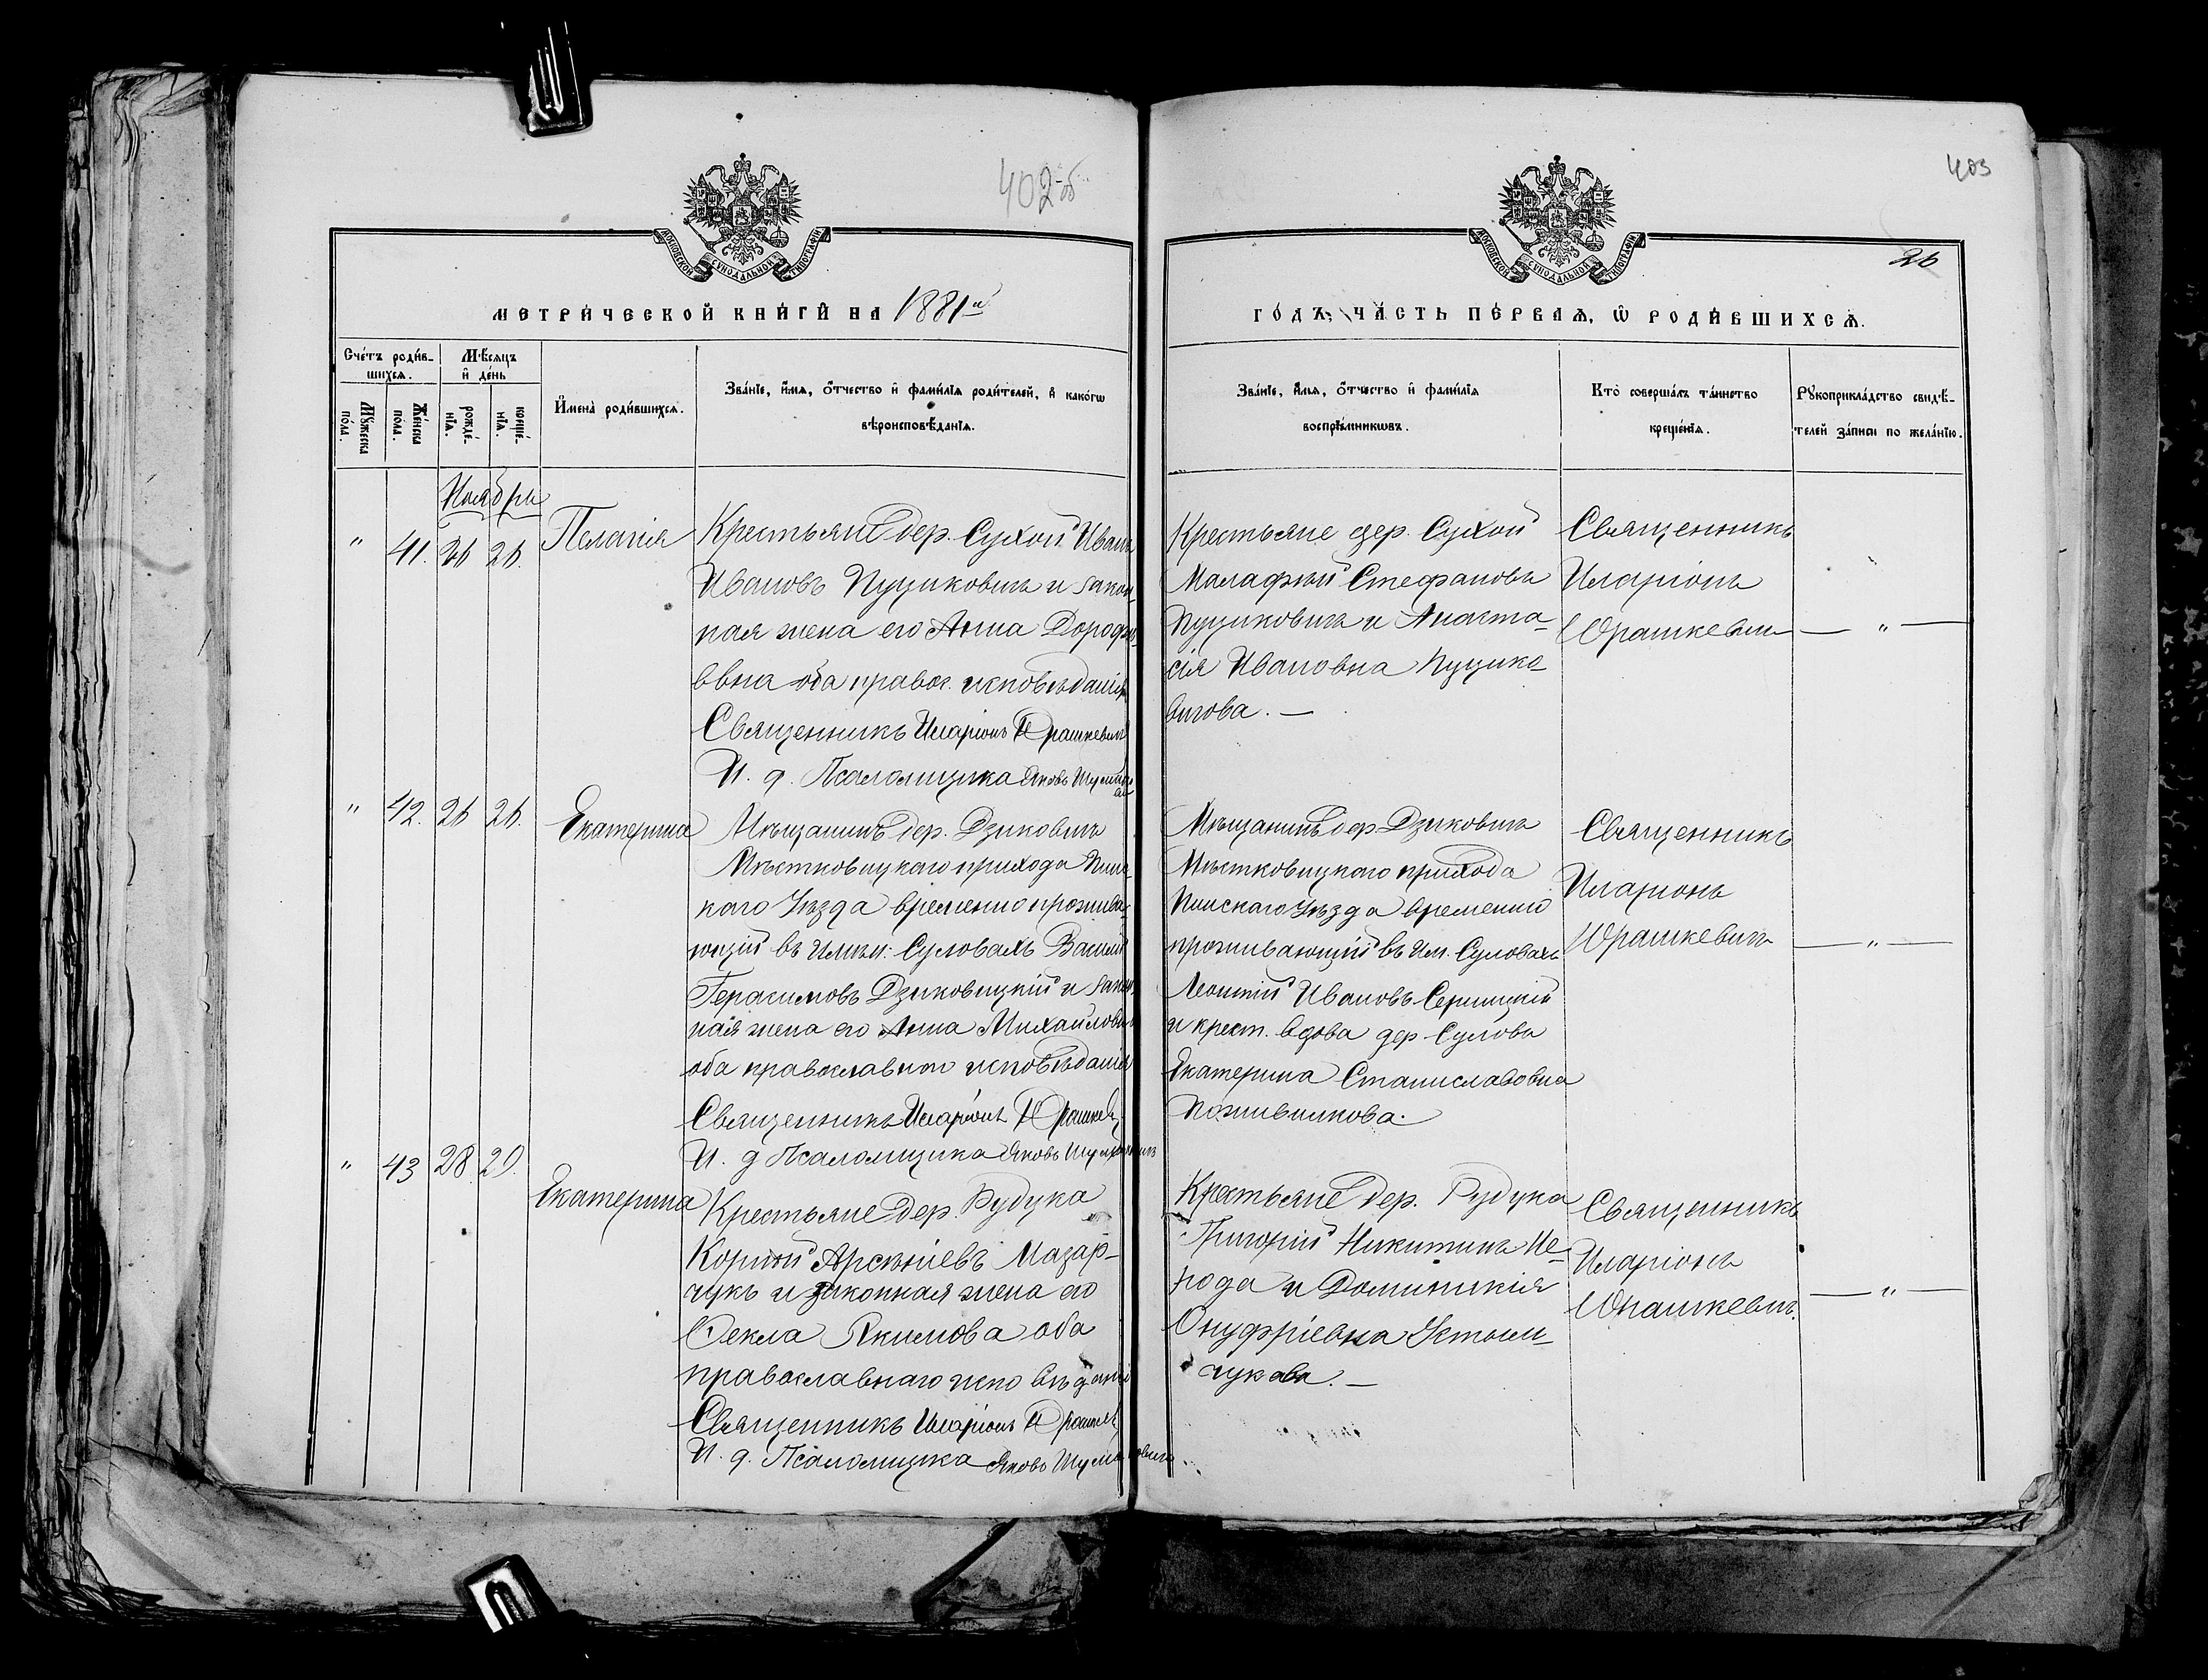 402-об
403
МОСКОВСКОЙ СѴНОДАЛЬНОЙ ТИПОГРАФІИ
МОСКОВСКОЙ СѴНОДАЛЬНОЙ ТИПОГРАФІИ
26
МЕТРИ́ЧЕСКОЙ КНИ́ГИ НА 1881й
ГО́ДЪ, ЧА́СТЬ ПЕ́РВАѦ, Ѡ РОДИ́ВШИХСѦ.
Сче́тъ роди́в-
шихсѧ.
Мꙋжеска по́ла.
Же́нска по́ла.
Мѣ́сѧцъ и де́нь
рожде́-нїѧ.
креще́-нїѧ.
И́мена̀ роди́вшихсѧ.
Зва́нїе, и́мѧ, о́тчество и фами́лїѧ роди́телей, и како́гѡ
вѣроисповѣ́данїѧ.
Зва́нїе, и́мѧ, о́тчество и фами́лїѧ
воспрїе́мникѡвъ.
Кто̀ соверша́лъ та́инство
креще́нїѧ.
Рꙋкоприкла́дство свидѣ́-
телей за́писи по жела́нїю.
Ноября
" 41. 26 26. Пелагія
Крестьяне дер. Сухой Иванъ
Ивановъ Пуциковичъ и закон-
ная жена его Анна Дорофе-
евна оба правос. исповѣданія
Священникъ Иларіонъ Юрашкевичъ
И. д. Псаломщика Яковъ
Крестьяне дер. Сухой
Малафѣй Стефановъ
Пуциковичъ и Анаста-
сія Ивановна Пуцико-
вичова. —
Священникъ
Иларіонъ
Юрашкевичъ
— " —
" 42. 26 26. Екатерина
Мѣщанинъ дер. Дзиковичъ
Мѣстковицкаго прихода Пинс-
каго Уѣзда временно прожива-
ющій въ Имѣн: Суловахъ Василій
Герасимовъ Дзиковицкій и закон-
ная жена его Анна Михайловна
оба православнаго исповѣданія
Священникъ Иларіонъ Юрашкев
И. д Псаломщика Яковъ
Мѣщанинъ дер. Дзиковичъ
Мѣстковицкаго прихода
Пинскаго Уѣзда временно
проживающій въ Им. Суловахъ
Леонтій Ивановъ
и крест. вдова дер Сулова
Екатерина Станиславовна
Священникъ
Иларіонъ
Юрашкевичъ
— " —
" 43 28. 29. Екатерина
Крестьяне дер. Рудука
Корнѣй Арсеніевъ Назар-
чукъ и законная жена его
Ѳекла Якимова оба
православнаго исповѣданія
Священникъ Иларіонъ Юрашкев
И. д. Псаломщика Яковъ
Крестьяне дер. Рудука
Григорій Никитинъ Не-
рода и Доминикія
Онуфріевна Устым-
чукова. —
Священникъ
Иларіонъ
Юрашкевичъ.
— " —